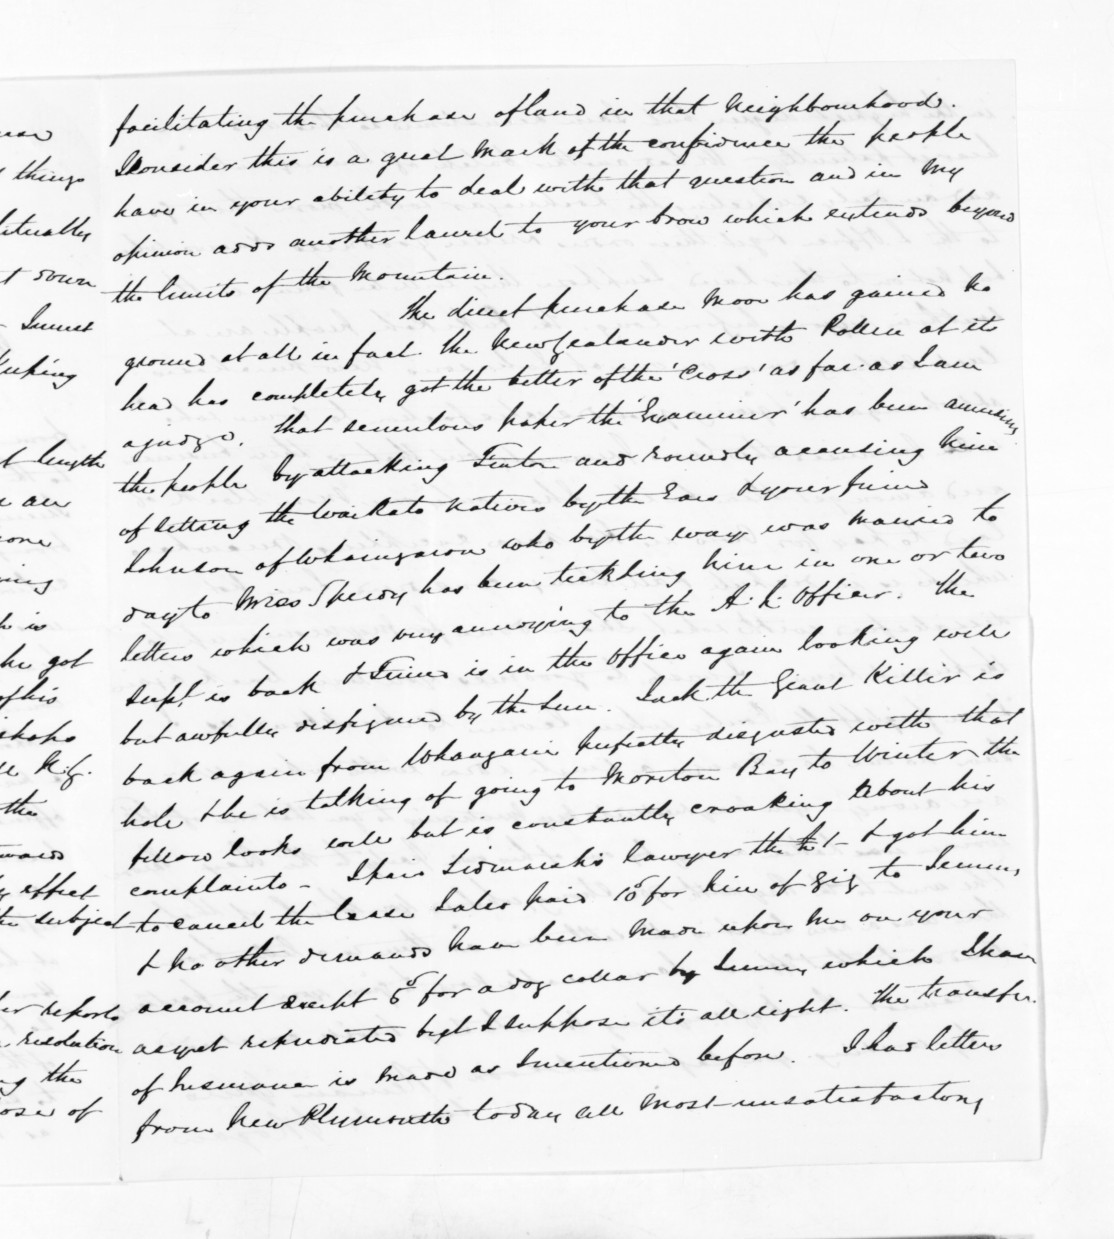 facilitating the purchase of land in that Neighbourhood.
I consider this is a great Mark of the confidence the people
have in your ability to deal with that question and in My
opinion adds another laurel to your brow which extends beyond
the limits of the Mountain.
The direct purchase Move has gained no
ground at all in fact. The New Zealander with Pollen at its
head has completely got the better of the 'Cross' as far as I am
a judge. That scurrilous paper the 'Examiner' has been amusing
the people by attacking Fenton and roundly accusing him
of setting the Waikato Natives by the Ears & your friend
Johnson of Whaingaroa who by the way was Married to
day to Miss Speedy has been tickling him in one or two
letters which was very annoying to the A. L. Officer. The
Supt. is back & is in the Office again looking well
but awfully disfigured by the Sun. Jack the Giant Killer is
back again from Whangarei disgusted with that
hole & he is talking of going to Moreton Bay to Winter the
fellow looks well but is constantly croaking About his
complaints – I paid Sidmarsh's lawyer the & got him
to cancel the lease paid 10/ for hire of Gig to
& No other demands have been Made upon Me on your
account except 6/ for a dog collar by which I have
as yet repudiated but I suppose it's all right. The transfer
of is Made as I mentioned before. I had letters
from New Plymouth today all Most unsatisfactory
things
down
length
an
is
he got
of his
the
effect
the subject
reports
resolution
the
of